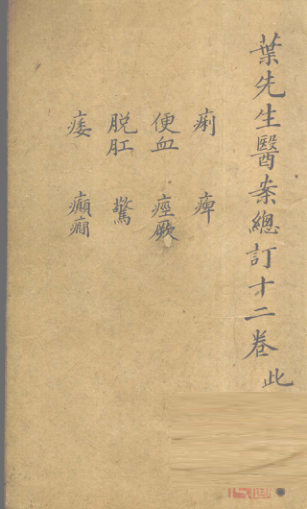 葉先生醫案總訂十二卷此
痢 痺
便血 痙厥
脱肛 驚
痿 癲癇